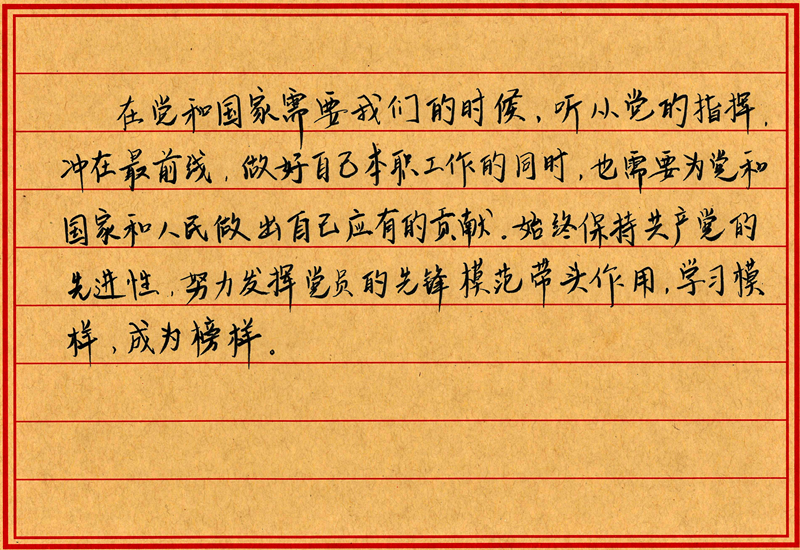 在党和国家需要我们的时候，听小党的指挥，
冲在最前线，做好自己本职工作的同时，也需要为党和
国家和人民做出自己应有的贡献。始终保持共产党的
先进性，努力发挥党员的先锋模范带头作用，学习模
样，成为榜样。